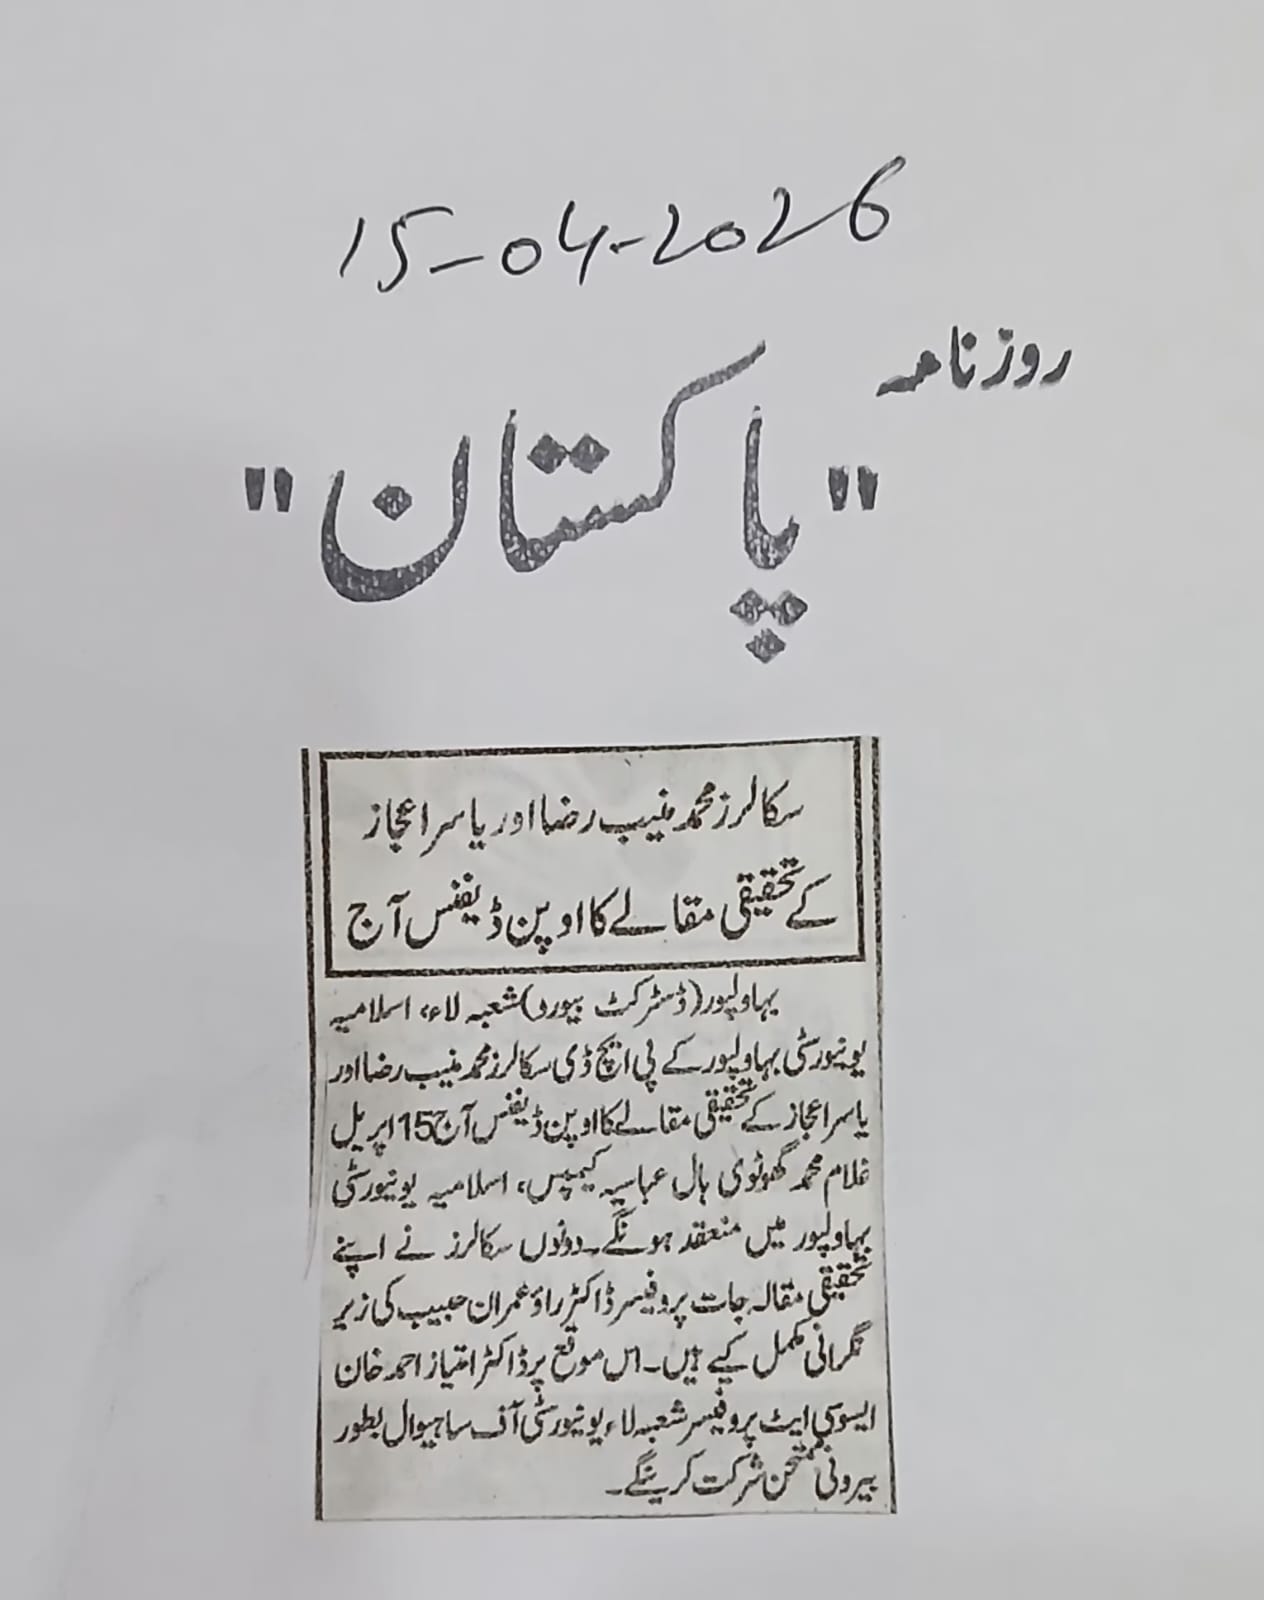 15-04-2026
روزنامہ
"پاکستان"
سکالرز محمد منیب رضا اور یاسر اعجاز
کے تحقیقی مقالے کا اوپن ڈیفنس آج
بہاولپور (ڈسٹرکٹ بیورو) شعبہ لاء، اسلامیہ
یونیورسٹی بہاولپور کے پی ایچ ڈی سکالرز محمد منیب رضا اور
یاسر اعجاز کے تحقیقی مقالے کا اوپن ڈیفنس آج 15 اپریل
غلام محمد گھوٹوی ہال عباسیہ کیمپس، اسلامیہ یونیورسٹی
بہاولپور میں منعقد ہونگے۔ دونوں سکالرز نے اپنے
تحقیقی مقالہ جات پروفیسر ڈاکٹر راؤ عمران حبیب کی زیر
نگرانی مکمل کیے ہیں۔ اس موقع پر ڈاکٹر امتیاز احمد خان
ایسوسی ایٹ پروفیسر شعبہ لاء یونیورسٹی آف ساہیوال بطور
بیرونی ممتحن شرکت کرینگے۔